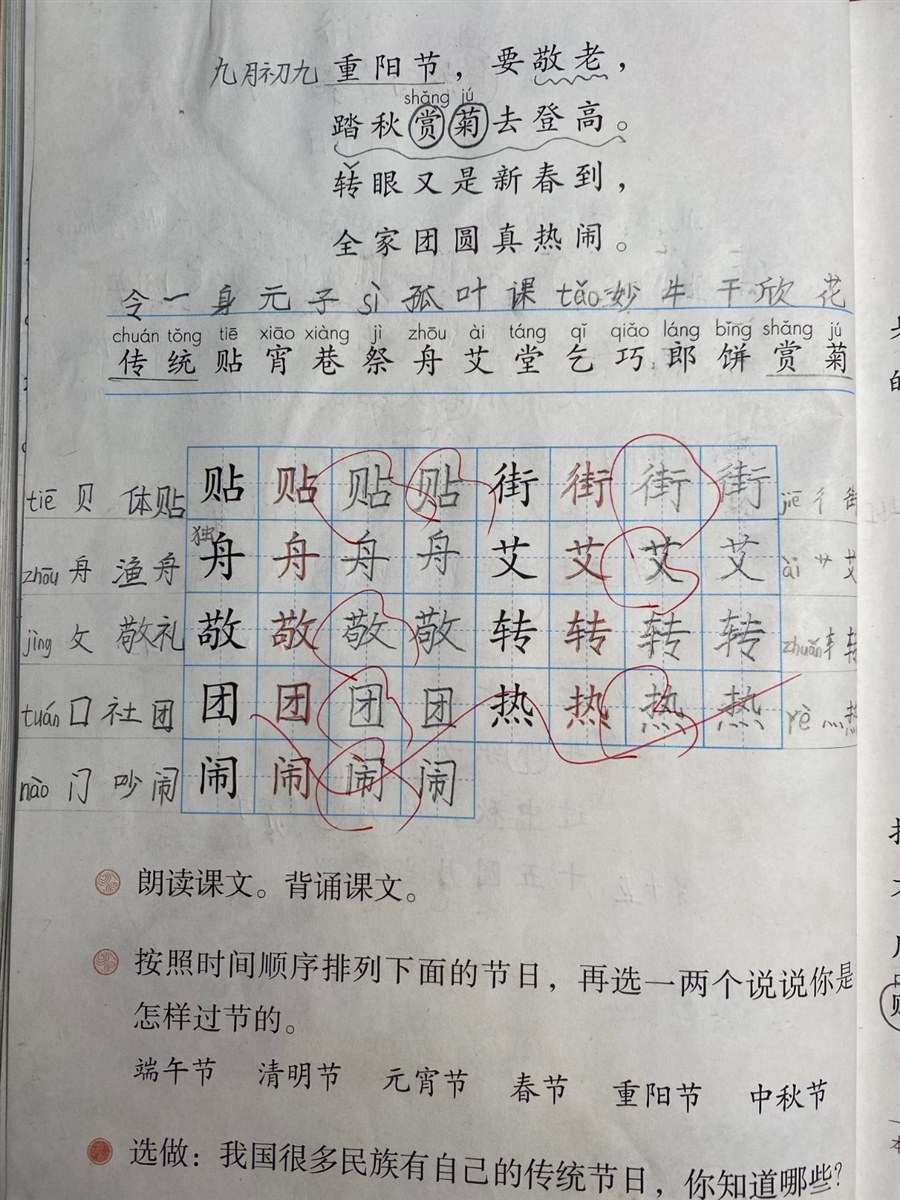 九月初九 重阳节，要敬老，
shǎng jú
踏秋赏菊去登高。
转眼又是新春到，
全家团圆真热闹。
令 一 身 元 子 sì 孤 叶 课 tǎo 妙 牛 干 欣 花
chuán tǒng tiē xiāo xiàng jì zhōu ài táng qǐ qiǎo láng bǐng shǎng jú
传 统 贴 宵 巷 祭 舟 艾 堂 乞 巧 郎 饼 赏 菊
tiē 贝 体贴 贴 贴 贴 贴 街 街 街 街 jiē 彳
独
zhōu 舟 渔舟 舟 舟 舟 舟 艾 艾 艾 艾 ài 艹 艾
jìng 攵 敬礼 敬 敬 敬 敬 转 转 转 转 zhuǎn 车 转
tuán 囗 社团 团 团 团 团 热 热 热 热 rè 灬 热
nào 门 吵闹 闹 闹 闹 闹
朗读课文。背诵课文。
按照时间顺序排列下面的节日，再选一两个说说你是
怎样过节的。
端午节 清明节 元宵节 春节 重阳节 中秋节
选做：我国很多民族有自己的传统节日，你知道哪些？